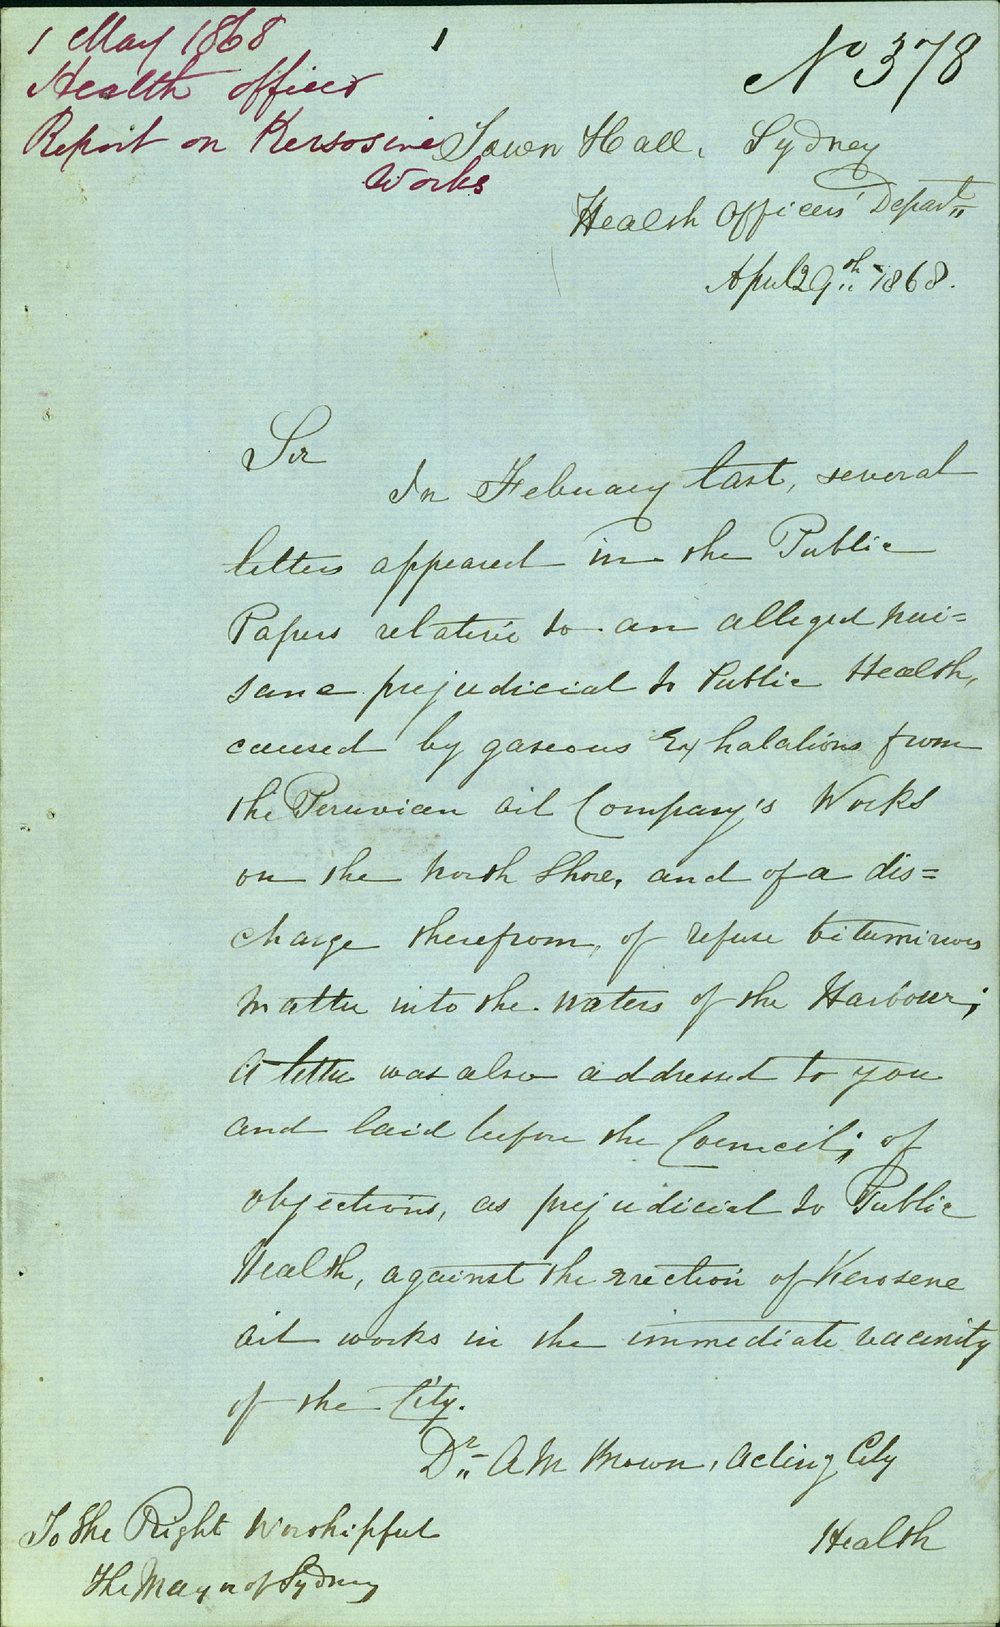 1 May 1868
1
No 378
Health officer
Report on Kersosine
Works
Town Hall, Sydney
Health Officers' Depart
April 29th 1868.
Sir
In February last, several
letters appeared in the Public
Papers relative to an alleged nui=
sance prejudicial to Public Health,
caused by gaseous Exhalations from
the Peruvian oil Company's Works
on the North Shore, and of a dis=
charge therefrom, of refuse bituminous
matter into the waters of the Harbour;
A letter was also addressed to you
and laid before the Council; of
objections, as prejudicial to Public
Health, against the erection of Kerosene
oil works in the immediate vacinity
of the City.
Dr A M Brown, Acting City
Health
To The Right Worshipful
The Mayor of Sydney